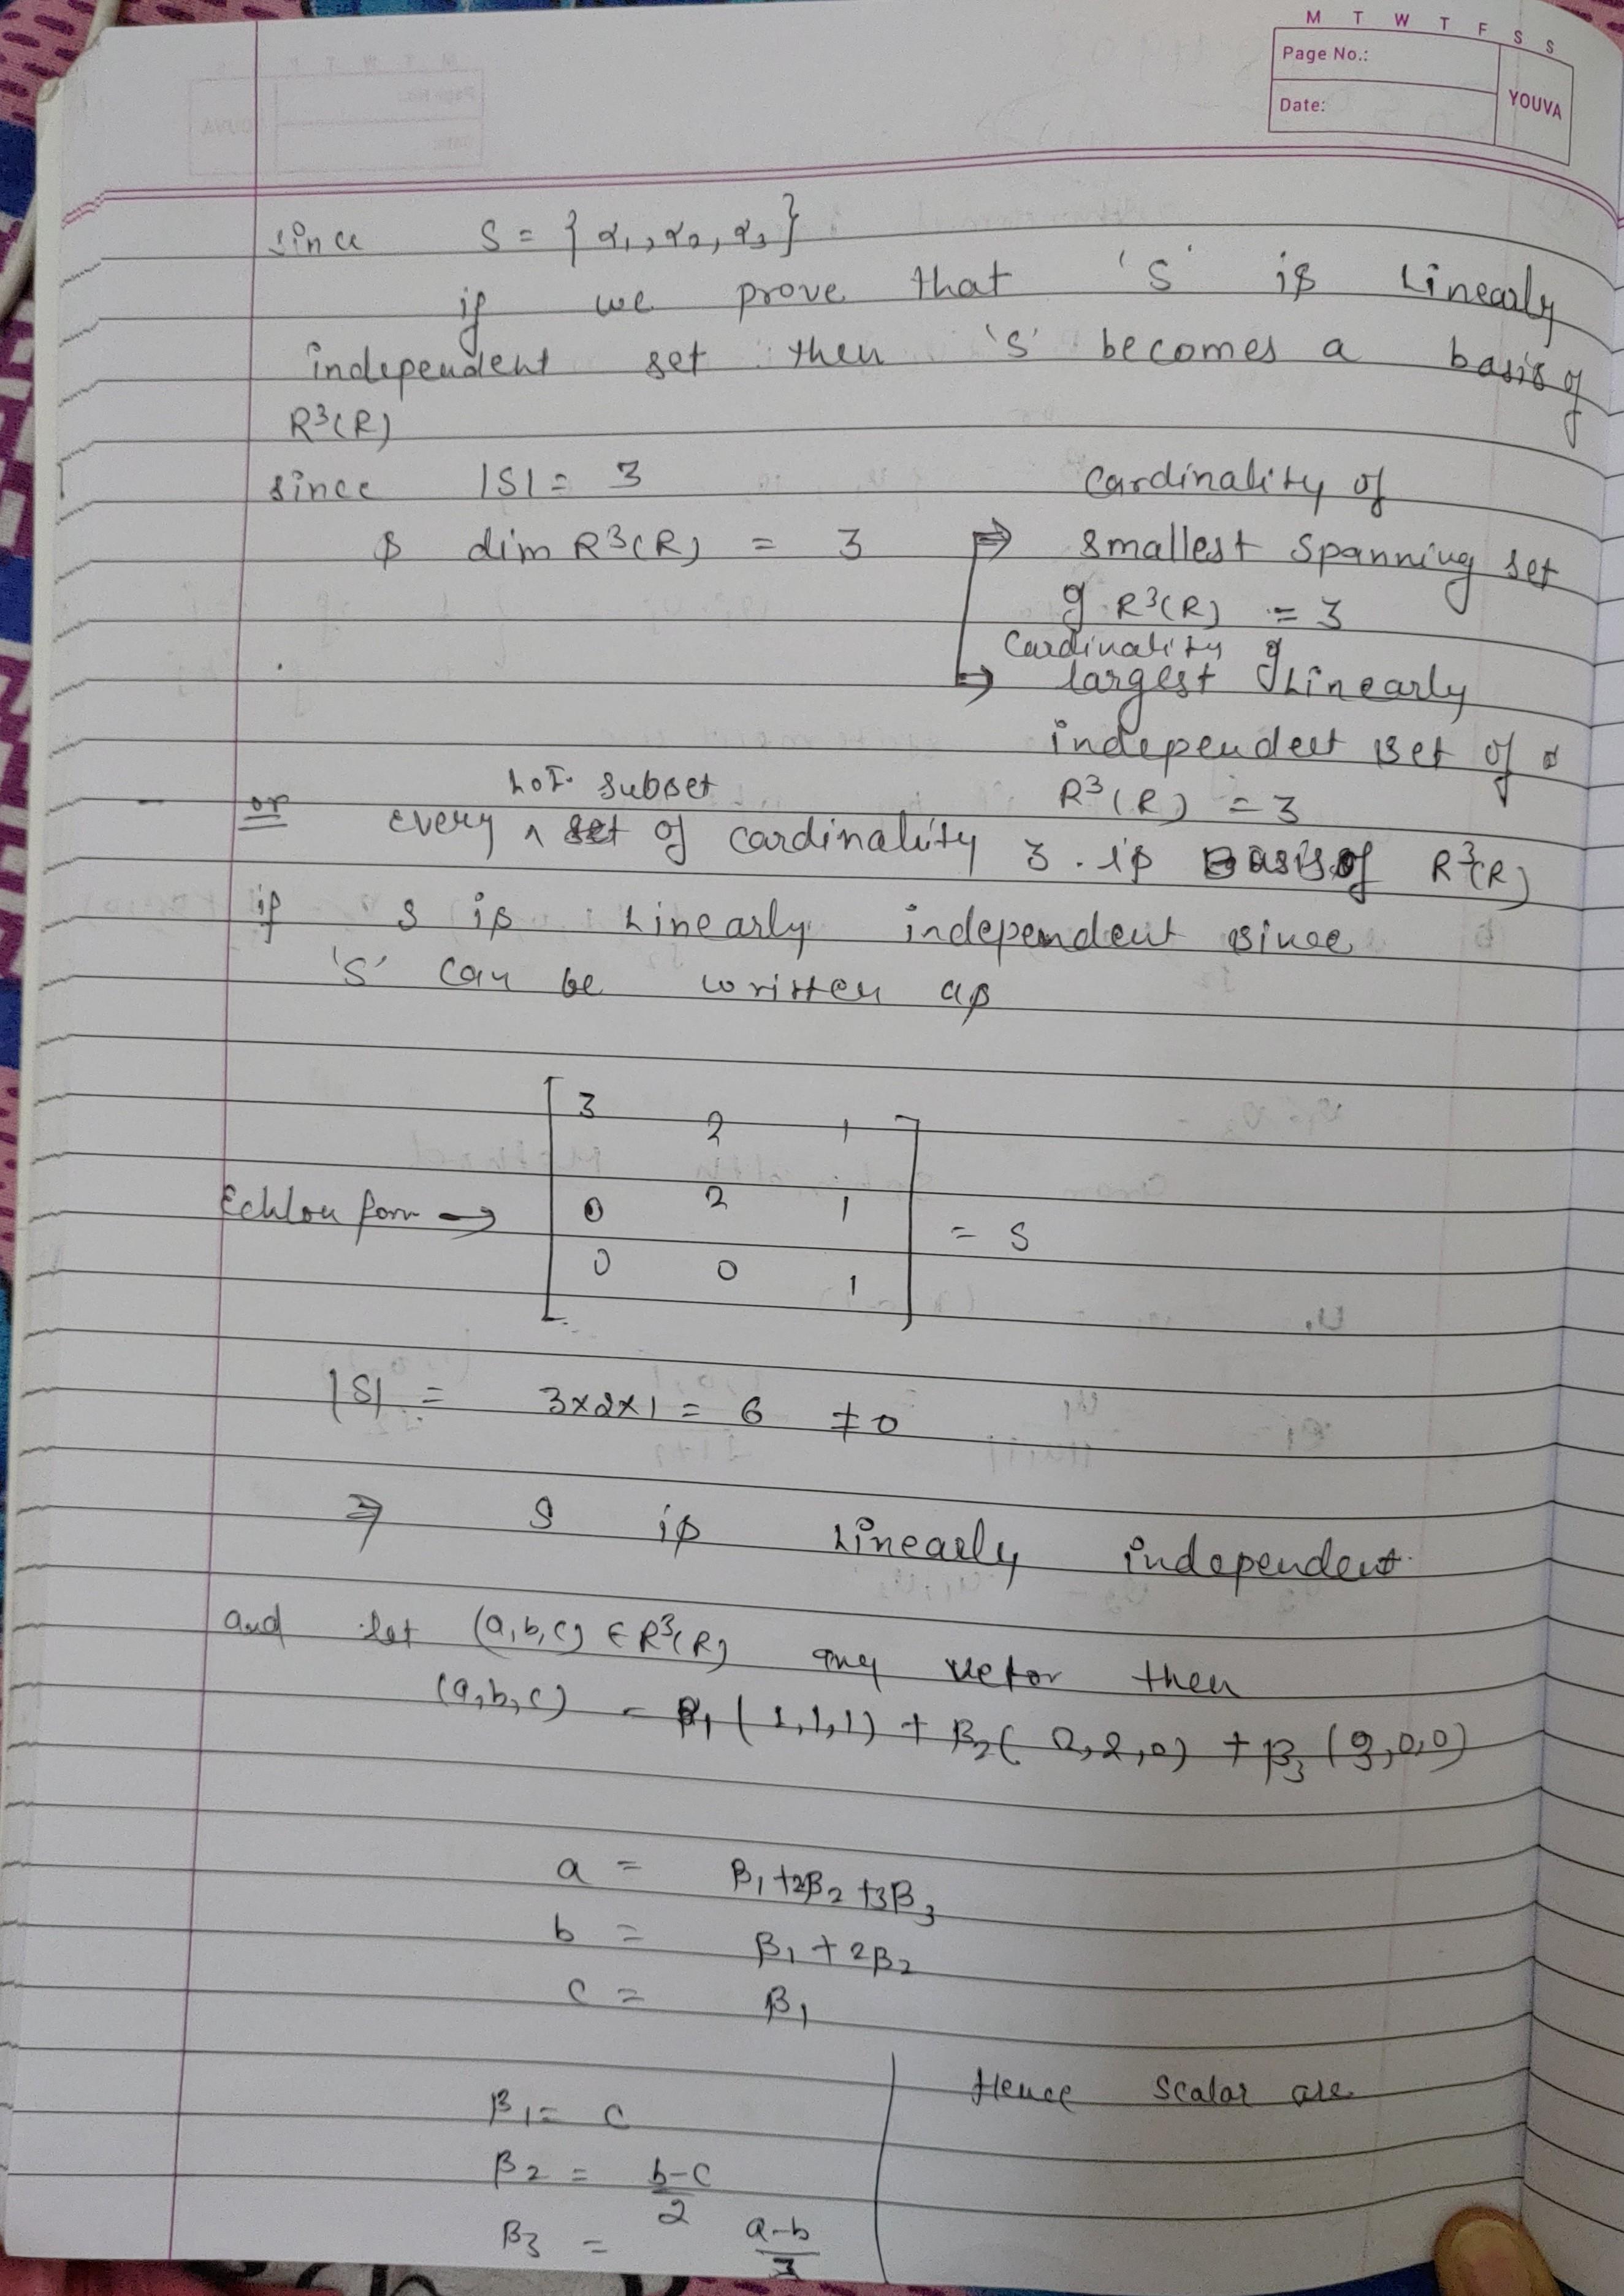 M T W T F S S
Page No.:
Date:
YOUVA
since S = { α1, α2, α3 }
if we prove that 'S' is Linearly
independent set then 'S' becomes a basis of
R³(R)
since |S| = 3
& dim R³(R) = 3
⇒ Cardinality of
smallest spanning set
of R³(R) = 3
⇒ Cardinality of
largest Linearly
independent set of
R³(R) = 3
or every L.I. subset of cardinality 3 is Basis of R³(R)
if S is Linearly independent since
'S' can be written as
Echlon form → [ 3 2 1
0 2 1
0 0 1 ] = S
|S| = 3×2×1 = 6 ≠ 0
⇒ S is Linearly independent.
and let (a,b,c) ∈ R³(R) any vetor then
(a,b,c) = β1 (1,1,1) + β2 (2,2,0) + β3 (3,0,0)
a = β1+2β2+3β3
b = β1 + 2β2
c = β1
β1 = c
β2 = b-c/2
β3 = a-b/3
Hence scalar are